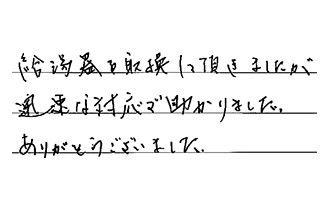 給湯器を取換して頂きましたが
迅速な対応で助かりました。
ありがとうございました。